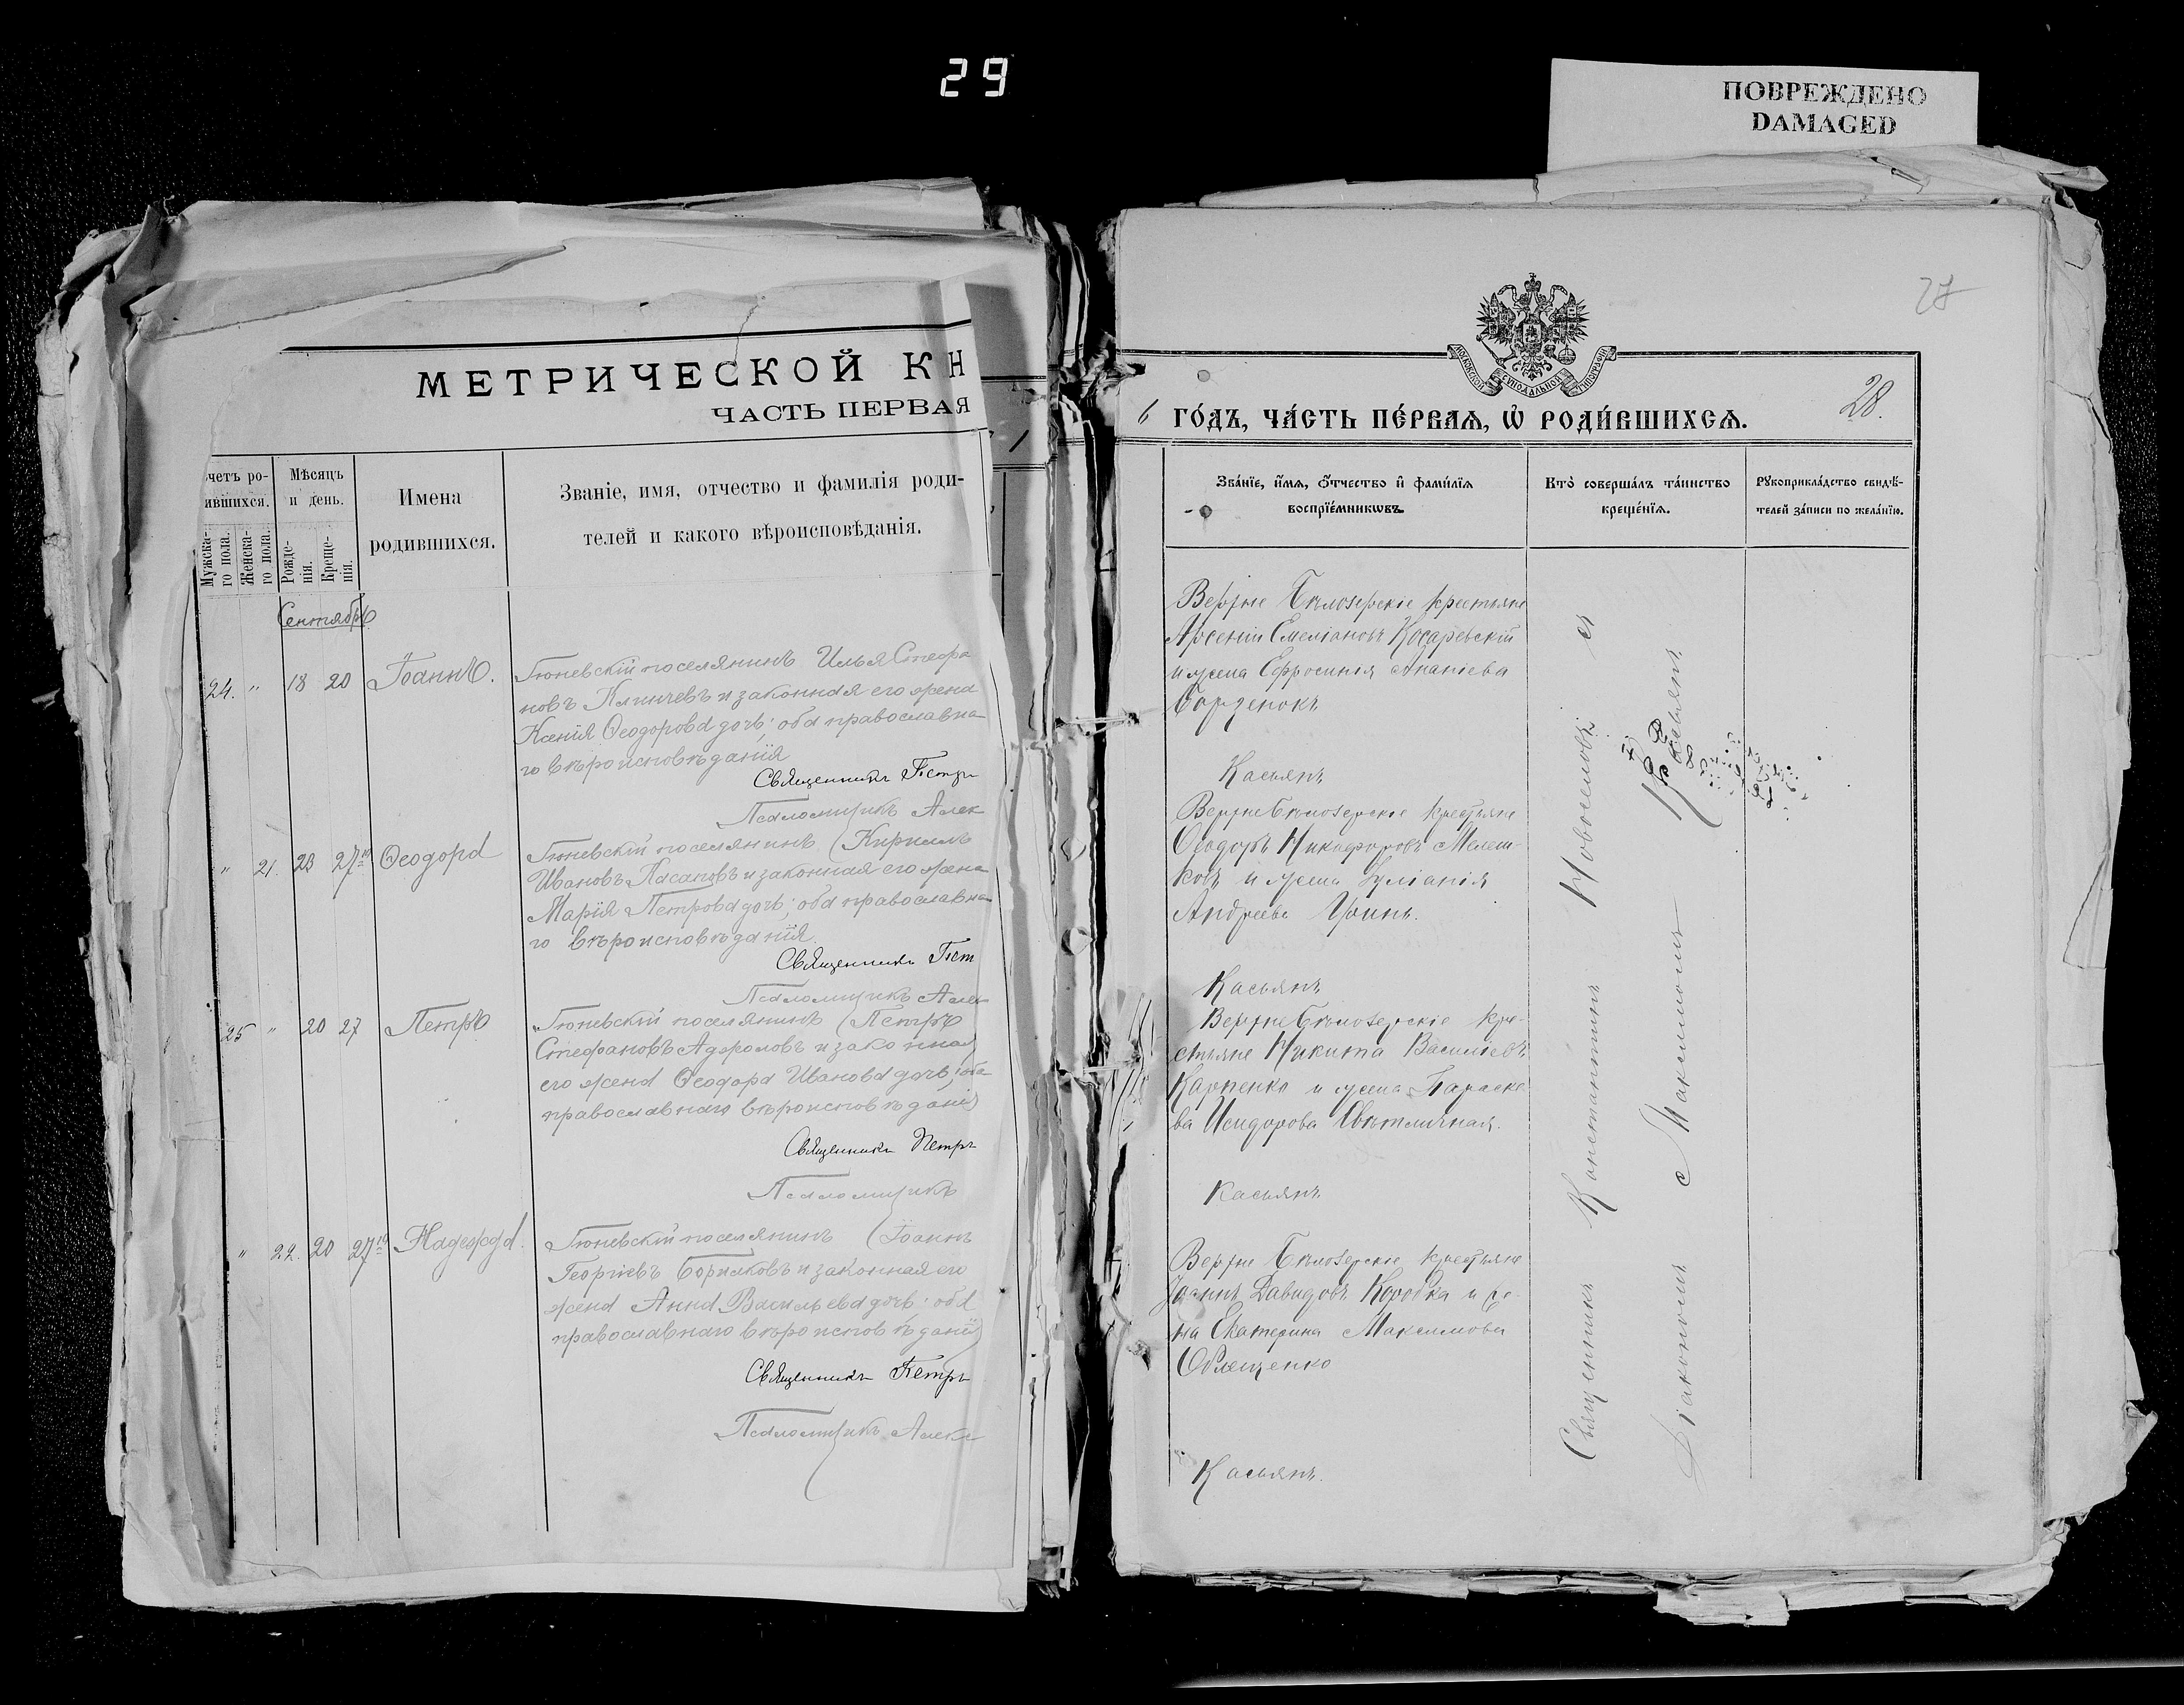 29
ПОВРЕЖДЕНО
DAMAGED
МЕТРИЧЕСКОЙ КН
ЧАСТЬ ПЕРВАЯ
четъ ро-
ившихся.
Мужска-
го пола.
Женска-
го пола.
Мѣсяцъ
и день.
Рожде-
нія.
Креще-
нія.
Имена
родившихся.
Званіе, имя, отчество и фамилія роди-
телей и какого вѣроисповѣданія.
Сентябрь
24. " 18 20 Іоаннъ.
Тюневскій поселянинъ Илья Стефа
новъ и законная его жена
Ксенія Ѳеодорова дочь; оба православна
го вѣроисповѣданія
Священникъ Петръ
Псаломщикъ Алек
" 21. 23 27го Ѳеодора
Тюневскій поселянинъ Кириллъ
Ивановъ и законная его жена
Марія Петрова дочь; оба православна
го вѣроисповѣданія.
Священникъ Пет
Псаломщикъ Алек
25 " 20 27 Петръ
Тюневскій поселянинъ Петръ
Стефановъ и законная
его жена Ѳеодора Иванова дочь; оба
православнаго вѣроисповѣданія
Священникъ Петръ
Псаломщикъ
" 22. 20 27го Надежда.
Тюневскій поселянинъ Іоаннъ
Георгіевъ и законная его
жена Анна Васильева дочь; оба
православнаго вѣроисповѣданія
Священникъ Петръ
Псаломщикъ Алекс
27
28.
МОСКОВСКОЙ СѴНОДАЛЬНОЙ ТИПОГРАФІИ
6 го́дъ, ча́сть пе́рвая, ѡ҆ роди́вшихся.
Зва́нїе, и҆́мя, ѻ҆́тчество и҆ фамилїя
воспрїе́мникѡвъ
Кто̀ соверша́лъ та́инство
креще́нїя.
Рꙋкоприкла́дство свидѣ́-
телей за́писи по жела́нїю.
Верхне Бѣлозерскіе крестьяне
Арсеній Емеліановъ Косаревскій
и жена Ефросинія Ананіева
Касьянъ
Верхне Бѣлозерскіе крестьяне
Ѳеодоръ Никифоровъ Мелеш-
ковъ и жена Іуліанія
Андреева
Касьянъ
Верхне Бѣлозерскіе кре-
стьяне Никита Васильевъ
Карпенко и жена Параске
ва Исидорова Свѣтличная.
Касьянъ
Верхне Бѣлозерскіе крестьяне
Іоаннъ Давидовъ Коробка и же-
на Екатерина Максимова
Касьянъ.
Священникъ Константинъ Новоселовъ съ
Діакономъ Максимомъ